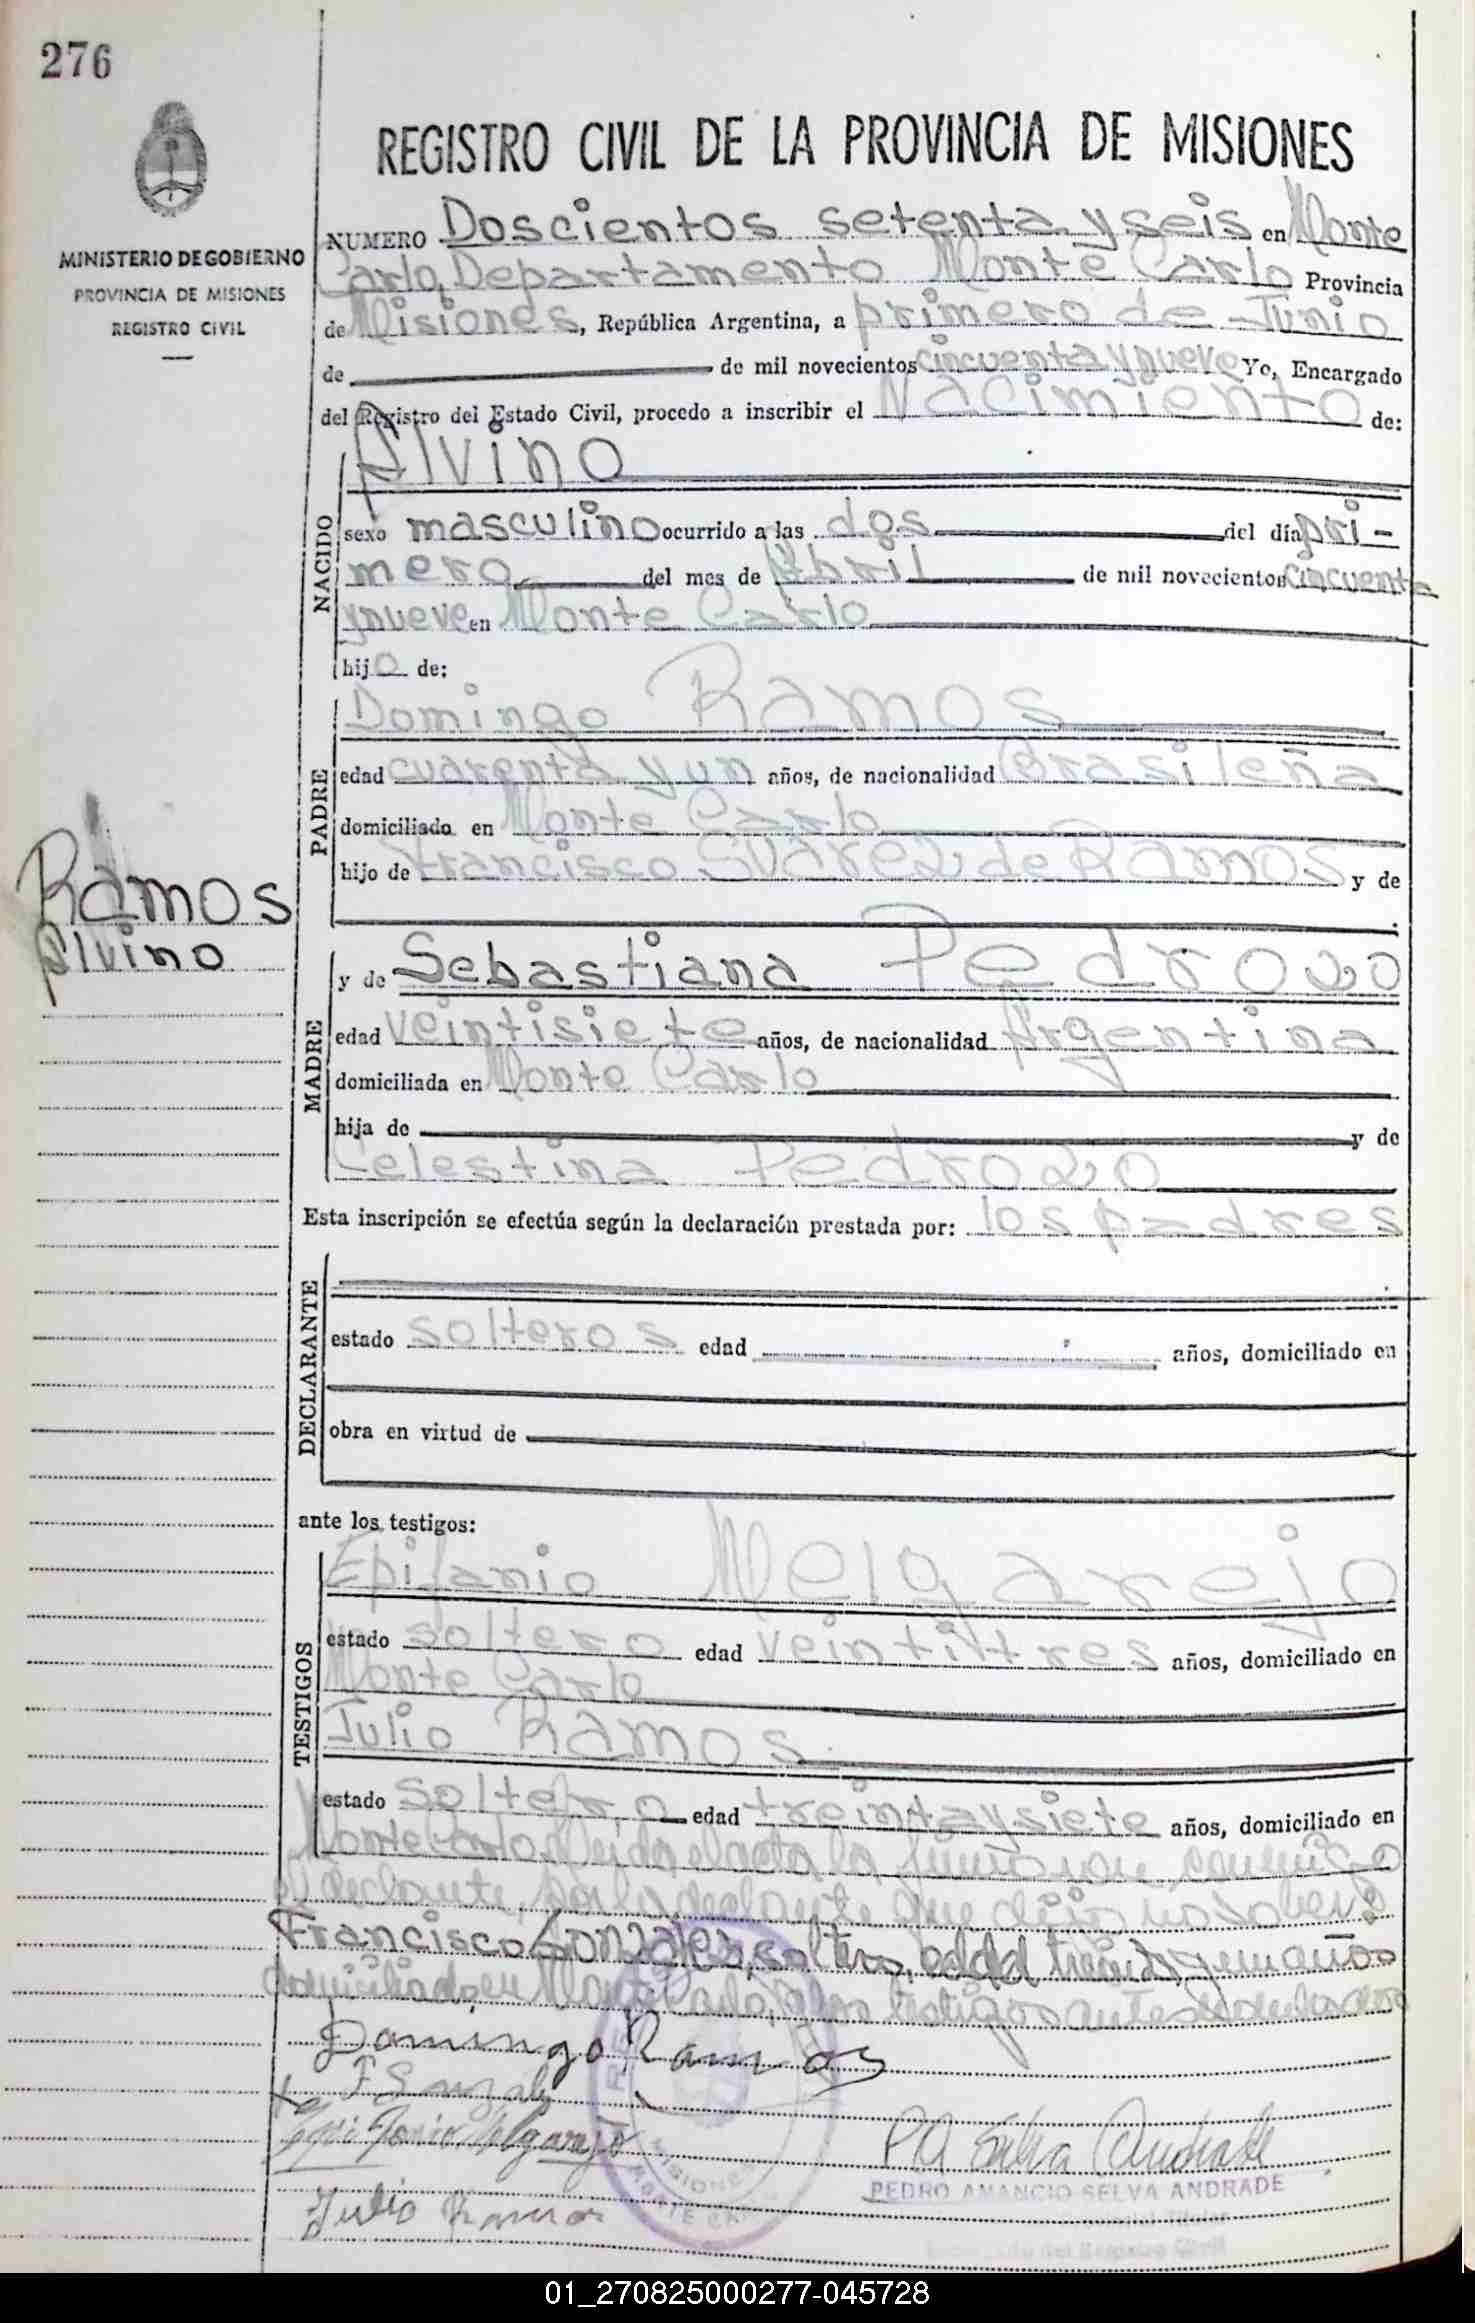 276
MINISTERIO DE GOBIERNO
PROVINCIA DE MISIONES
REGISTRO CIVIL
REGISTRO CIVIL DE LA PROVINCIA DE MISIONES
NUMERO Doscientos setenta y seis en Monte
Carlo, Departamento Monte Carlo Provincia
de Misiones, República Argentina, a primero de Junio
de de mil novecientos cincuenta y nueve Yo, Encargado
del Registro del Estado Civil, procedo a inscribir el Nacimiento de:
Alvino
NACIDO
sexo masculino ocurrido a las dos del día pri-
mero del mes de Abril de mil novecientos cincuenta
y nueve en Monte Carlo
hijo de:
PADRE
Domingo Ramos
edad cuarenta y un años, de nacionalidad Brasileña
domiciliado en Monte Carlo
hijo de Francisco Suarez de Ramos y de
Ramos
Alvino
MADRE
y de Sebastiana Pedrozo
edad veintisiete años, de nacionalidad Argentina
domiciliada en Monte Carlo
hija de y de
Celestina Pedrozo
Esta inscripción se efectúa según la declaración prestada por: los padres
DECLARANTE
estado solteros edad años, domiciliado en
obra en virtud de
ante los testigos:
TESTIGOS
Epifanio Melgarejo
estado soltero edad veintitres años, domiciliado en
Monte Carlo
Julio Ramos
estado soltero edad treinta y siete años, domiciliado en
Monte Carlo. Leida el acta la firmaron conmigo
el declarante, por la declarante que dijo no saber:
Francisco Gonzalez, soltero, edad treinta y un años
domiciliado en Monte Carlo, y los testigos antes
Domingo Ramos
F Gonzalez
Epifanio Melgarejo
Julio Ramos
P A Selva Andrade
PEDRO AMANCIO SELVA ANDRADE
del Registro Civil
MISIONES
MONTE CARLO
01_270825000277-045728